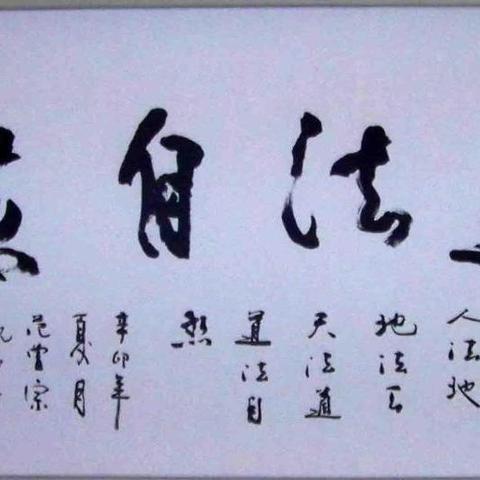 法自然
人法地
地法天
天法道
道法自
然
辛卯年
夏月
范曾宗